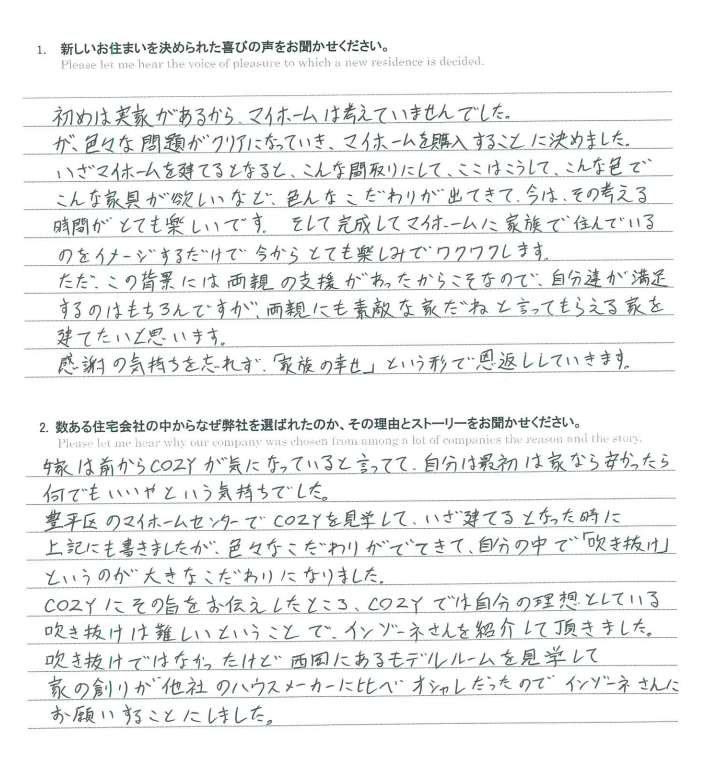 1. 新しいお住まいを決められた喜びの声をお聞かせください。
Please let me hear the voice of pleasure to which a new residence is decided.
初めは実家があるから、マイホームは考えていませんでした。
が、色々な問題がクリアになっていき、マイホームを購入することに決めました。
いざマイホームを建てるとなると、こんな間取りにして、ここはこうして、こんな色で
こんな家具が欲しいなど、色んなこだわりが出てきて、今は、その考える
時間がとても楽しいです。 そして完成してマイホームに家族で住んでいる
のをイメージするだけで今からとても楽しみでワクワクします。
ただ、この背景には両親の支援があったからこそなので、自分達が満足
するのはもちろんですが、両親にも素敵な家だねと言ってもらえる家を
建てたいと思います。
感謝の気持ちを忘れず、「家族の幸せ」という形で恩返ししていきます。
2. 数ある住宅会社の中からなぜ弊社を選ばれたのか、その理由とストーリーをお聞かせください。
Please let me hear why our company was chosen from among a lot of companies the reason and the story.
嫁は前からCOZYが気になっていると言ってて、自分は最初は家なら安かったら
何でもいいやという気持ちでした。
豊平区のマイホームセンターでCOZYを見学して、いざ建てるとなった時に
上記にも書きましたが、色々なこだわりがでてきて、自分の中で「吹き抜け」
というのが大きなこだわりになりました。
COZYにその旨をお伝えしたところ、COZYでは自分の理想としている
吹き抜けは難しいということで、インゾーネさんを紹介して頂きました。
吹き抜けではなかったけど西岡にあるモデルルームを見学して
家の創りが他社のハウスメーカーに比べオシャレだったのでインゾーネさんに
お願いすることにしました。